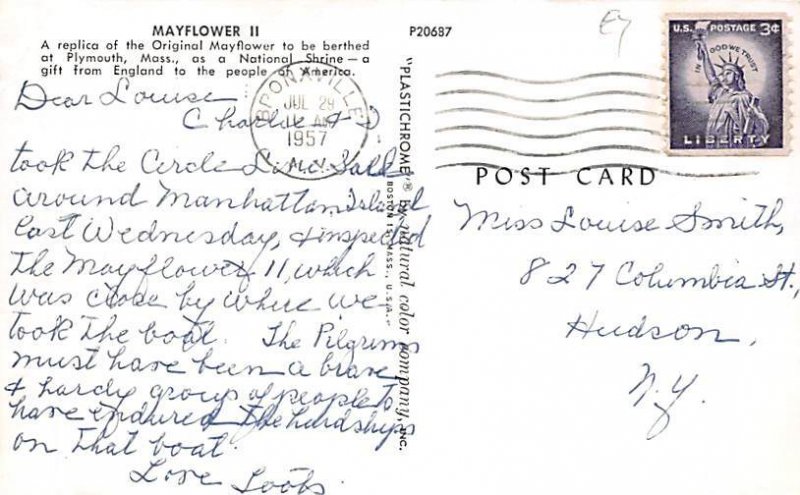 MAYFLOWER II
A replica of the Original Mayflower to be berthed
at Plymouth, Mass., as a National Shrine — a
gift from England to the people of America.
P20687
Dear Louise
Charlie & I
took the Circle Line Sail
around Manhattan Island
last Wednesday, & inspected
the Mayflower II, which
was close by where we
took the boat. The Pilgrims
must have been a brave
& hardy group of people to
have endured the hardships
on that boat.
Love Toots.
"PLASTICHROME"® by natural color company, INC.
BOSTON 15, MASS., U.S.A.
BRONXVILLE
JUL 29
11 AM
1957
N.Y.
U.S. POSTAGE 3¢
IN GOD WE TRUST
LIBERTY
POST CARD
Miss Louise Smith,
827 Columbia St.,
Hudson,
N.Y.